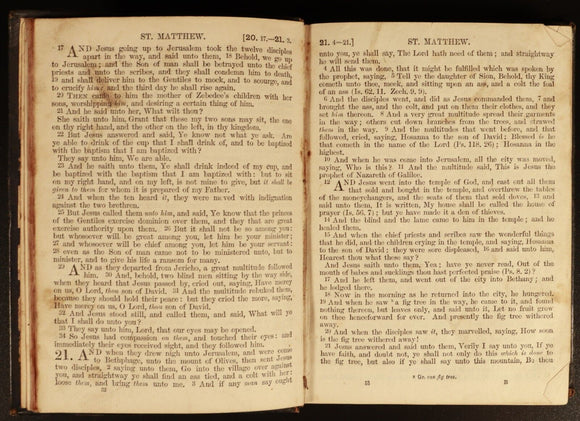 ST. MATTHEW. [20. 17.—21. 3.
17 AND Jesus going up to Jerusalem took the twelve disciples
apart in the way, and said unto them, 18 Behold, we go up
to Jerusalem; and the Son of man shall be betrayed unto the chief
priests and unto the scribes, and they shall condemn him to death,
19 and shall deliver him to the Gentiles to mock, and to scourge, and
to crucify him: and the third day he shall rise again.
20 THEN came to him the mother of Zebedee's children with her
sons, worshipping him, and desiring a certain thing of him.
21 And he said unto her, What wilt thou?
She saith unto him, Grant that these my two sons may sit, the one
on thy right hand, and the other on the left, in thy kingdom.
22 But Jesus answered and said, Ye know not what ye ask. Are
ye able to drink of the cup that I shall drink of, and to be baptized
with the baptism that I am baptized with?
They say unto him, We are able.
23 And he saith unto them, Ye shall drink indeed of my cup, and
be baptized with the baptism that I am baptized with: but to sit
on my right hand, and on my left, is not mine to give, but it shall be
given to them for whom it is prepared of my Father.
24 And when the ten heard it, they were moved with indignation
against the two brethren.
25 But Jesus called them unto him, and said, Ye know that the princes
of the Gentiles exercise dominion over them, and they that are great
exercise authority upon them. 26 But it shall not be so among you:
but whosoever will be great among you, let him be your minister;
27 and whosoever will be chief among you, let him be your servant:
28 even as the Son of man came not to be ministered unto, but to
minister, and to give his life a ransom for many.
29 AND as they departed from Jericho, a great multitude followed
him. 30 And, behold, two blind men sitting by the way side,
when they heard that Jesus passed by, cried out, saying, Have mercy
on us, O Lord, thou son of David. 31 And the multitude rebuked them,
because they should hold their peace: but they cried the more, saying,
Have mercy on us, O Lord, thou son of David.
32 And Jesus stood still, and called them, and said, What will ye
that I shall do unto you?
33 They say unto him, Lord, that our eyes may be opened.
34 So Jesus had compassion on them, and touched their eyes: and
immediately their eyes received sight, and they followed him.
21. AND when they drew nigh unto Jerusalem, and were come
to Bethphage, unto the mount of Olives, then sent Jesus
two disciples, 2 saying unto them, Go into the village over against
you, and straightway ye shall find an ass tied, and a colt with her:
loose them, and bring them unto me. 3 And if any man say ought
32
21. 4—21.] ST. MATTHEW.
unto you, ye shall say, The Lord hath need of them; and straightway
he will send them.
4 All this was done, that it might be fulfilled which was spoken by
the prophet, saying, 5 Tell ye the daughter of Sion, Behold, thy King
cometh unto thee, meek, and sitting upon an ass, and a colt the foal
of an ass (Is. 62. 11. Zech. 9. 9).
6 And the disciples went, and did as Jesus commanded them, 7 and
brought the ass, and the colt, and put on them their clothes, and they
set him thereon. 8 And a very great multitude spread their garments
in the way; others cut down branches from the trees, and strawed
them in the way. 9 And the multitudes that went before, and that
followed, cried, saying, Hosanna to the son of David: Blessed is he
that cometh in the name of the Lord (Ps. 118. 26); Hosanna in the
highest.
10 And when he was come into Jerusalem, all the city was moved,
saying, Who is this? 11 And the multitude said, This is Jesus the
prophet of Nazareth of Galilee.
12 AND Jesus went into the temple of God, and cast out all them
that sold and bought in the temple, and overthrew the tables
of the moneychangers, and the seats of them that sold doves, 13 and
said unto them, It is written, My house shall be called the house of
prayer (Is. 56. 7); but ye have made it a den of thieves.
14 And the blind and the lame came to him in the temple; and he
healed them.
15 And when the chief priests and scribes saw the wonderful things
that he did, and the children crying in the temple, and saying, Hosanna
to the son of David; they were sore displeased, 16 and said unto him,
Hearest thou what these say?
And Jesus saith unto them, Yea; have ye never read, Out of the
mouth of babes and sucklings thou hast perfected praise (Ps. 8. 2)?
17 And he left them, and went out of the city into Bethany; and
he lodged there.
18 Now in the morning as he returned into the city, he hungered.
19 And when he saw a fig tree in the way, he came to it, and found
nothing thereon, but leaves only, and said unto it, Let no fruit grow
on thee henceforward for ever. And presently the fig tree withered
away.
20 And when the disciples saw it, they marvelled, saying, How soon
is the fig tree withered away!
21 Jesus answered and said unto them, Verily I say unto you, If ye
have faith, and doubt not, ye shall not only do this which is done to
the fig tree, but also if ye shall say unto this mountain, Be thou
Gr. one fig tree.
33 B